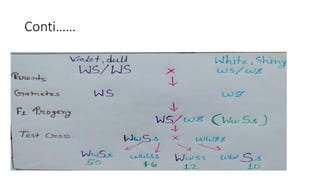 Conti......
Violet, dull White, Shiny
Parents WS/WS x ws/ws
Gametes WS ws
F1 Progeny WS/ws (WwSs)
Test Cross WwSs x wwss
WwSs wwss Wwss wwSs
50 46 12 10